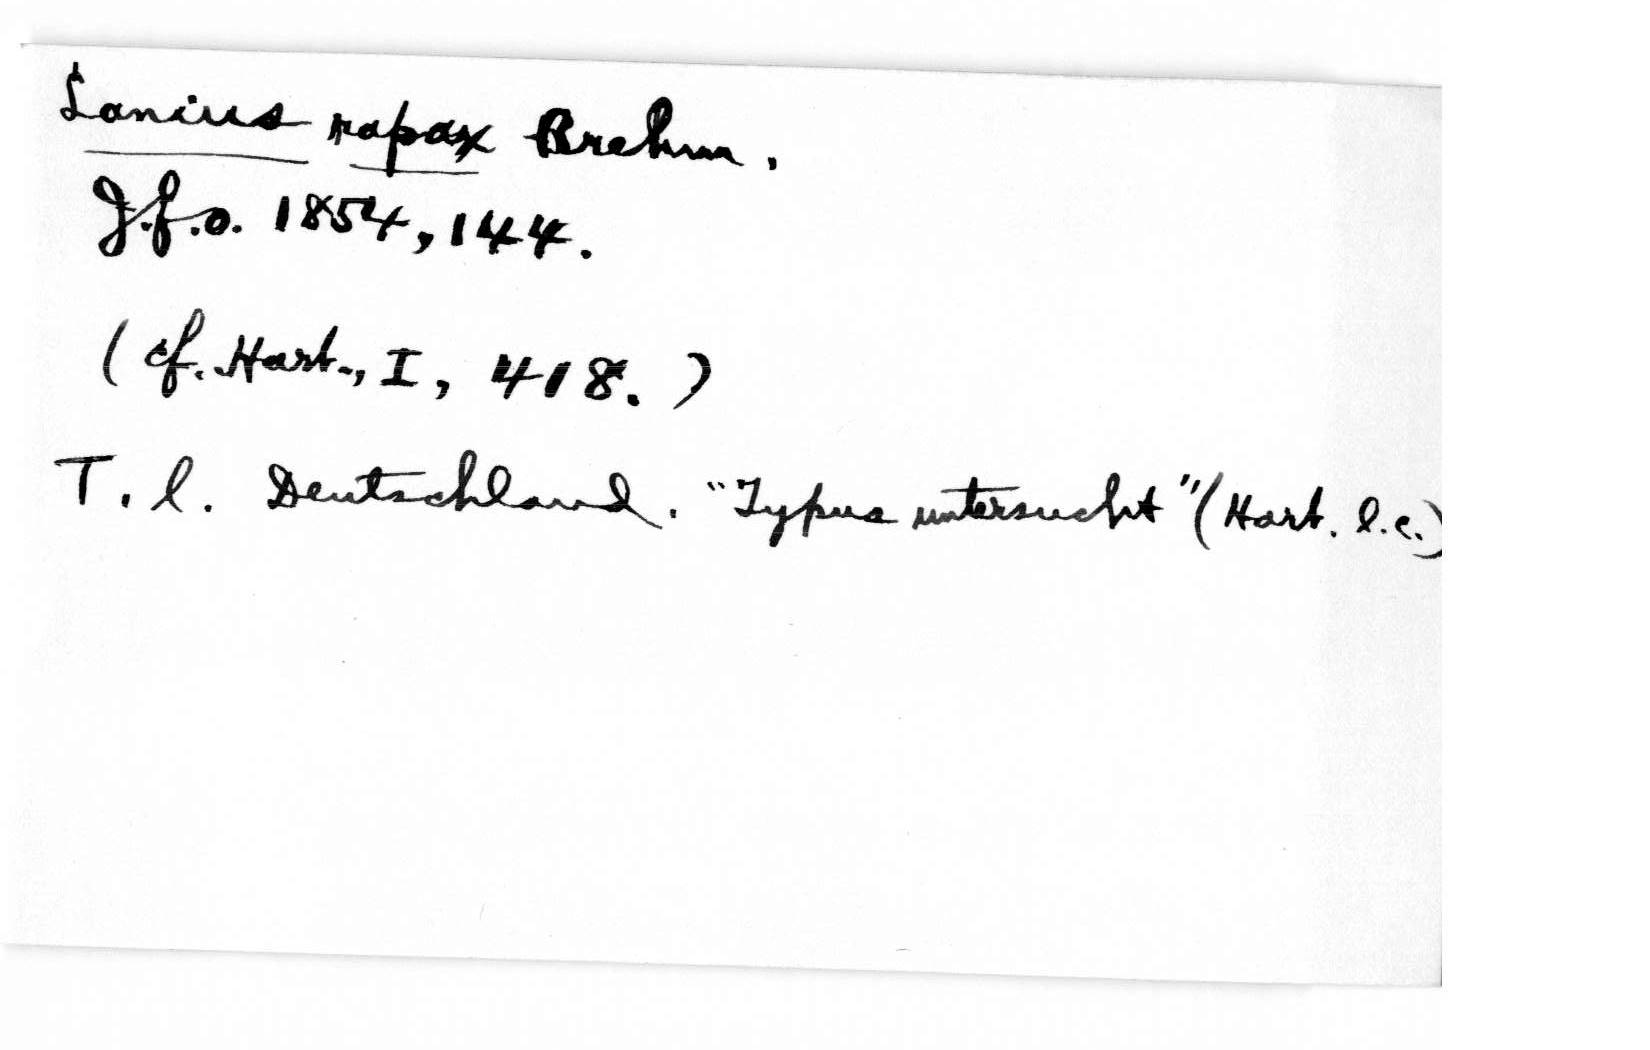 Lanius rapax Brehm.,
J.f.o. 1854, 144.
(cf. Hart., I, 418.)
T. l. Deutschland. "Typus untersucht" (Hart. l.c.)